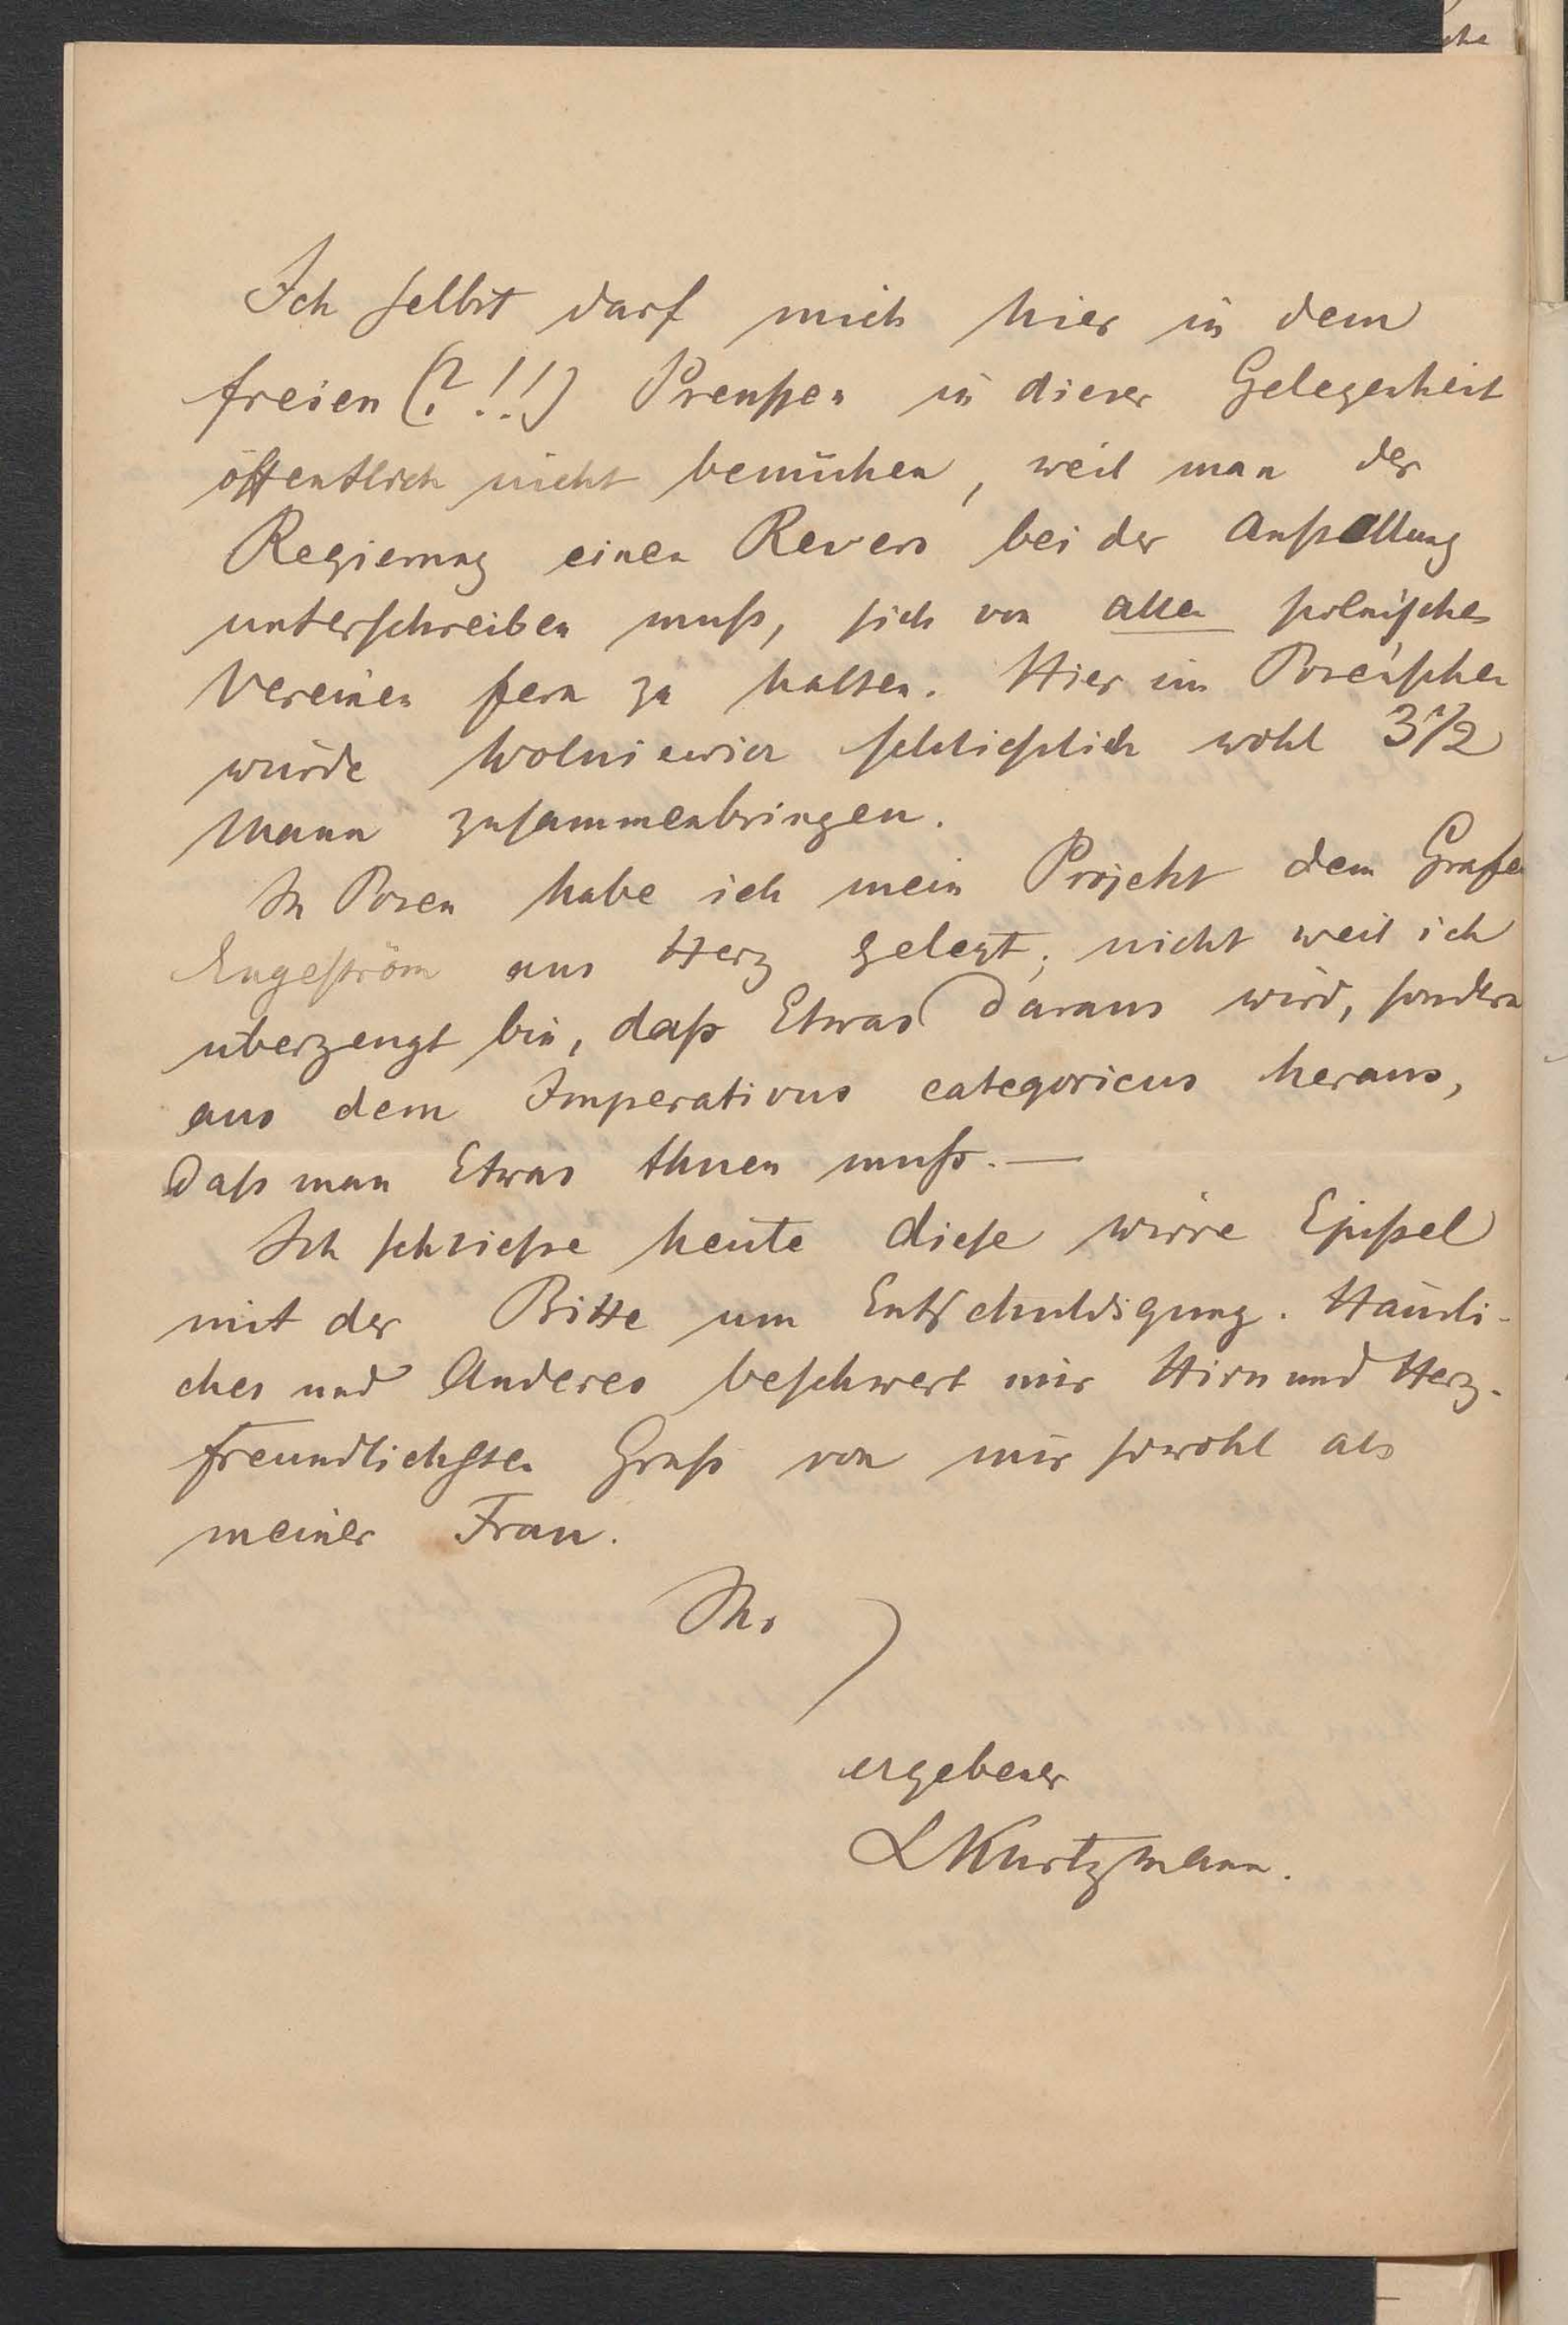 Ich selbst darf mich hier in dem
freien (?!!) Preußen in dieser Gelegenheit
öffentlich nicht bemühen, weil man der
Regierung einen Revers bei der Anstellung
unterschreiben muß, sich von allen polnischen
Vereinen fern zu halten. Hier im Posen'schen
würde Wolniewicz schließlich wohl 3 1/2
Mann zusammenbringen.
In Posen habe ich mein Projekt dem Grafen
Engeström ans Herz gelegt; nicht weil ich
überzeugt bin, daß Etwas daraus wird, sondern
aus dem Imperativus categoricus heraus,
daß man Etwas thuen muß. —
Ich schließe heute diese wirre Epistel
mit der Bitte um Entschuldigung. Häusli-
ches und Anderes beschwert mir Hirn und Herz.
Freundlichsten Gruß von mir sowohl als
meiner Frau.
Ihr
ergebener
LKurtzmann.